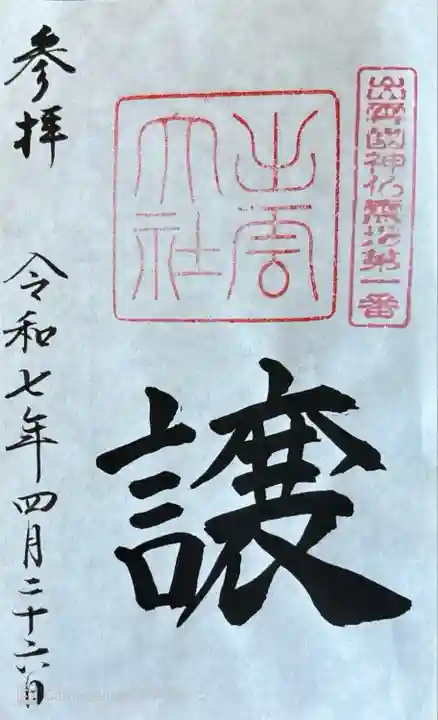 出雲國神仏霊場第一番
出雲
大社
譲
参拝 令和七年四月二十六日